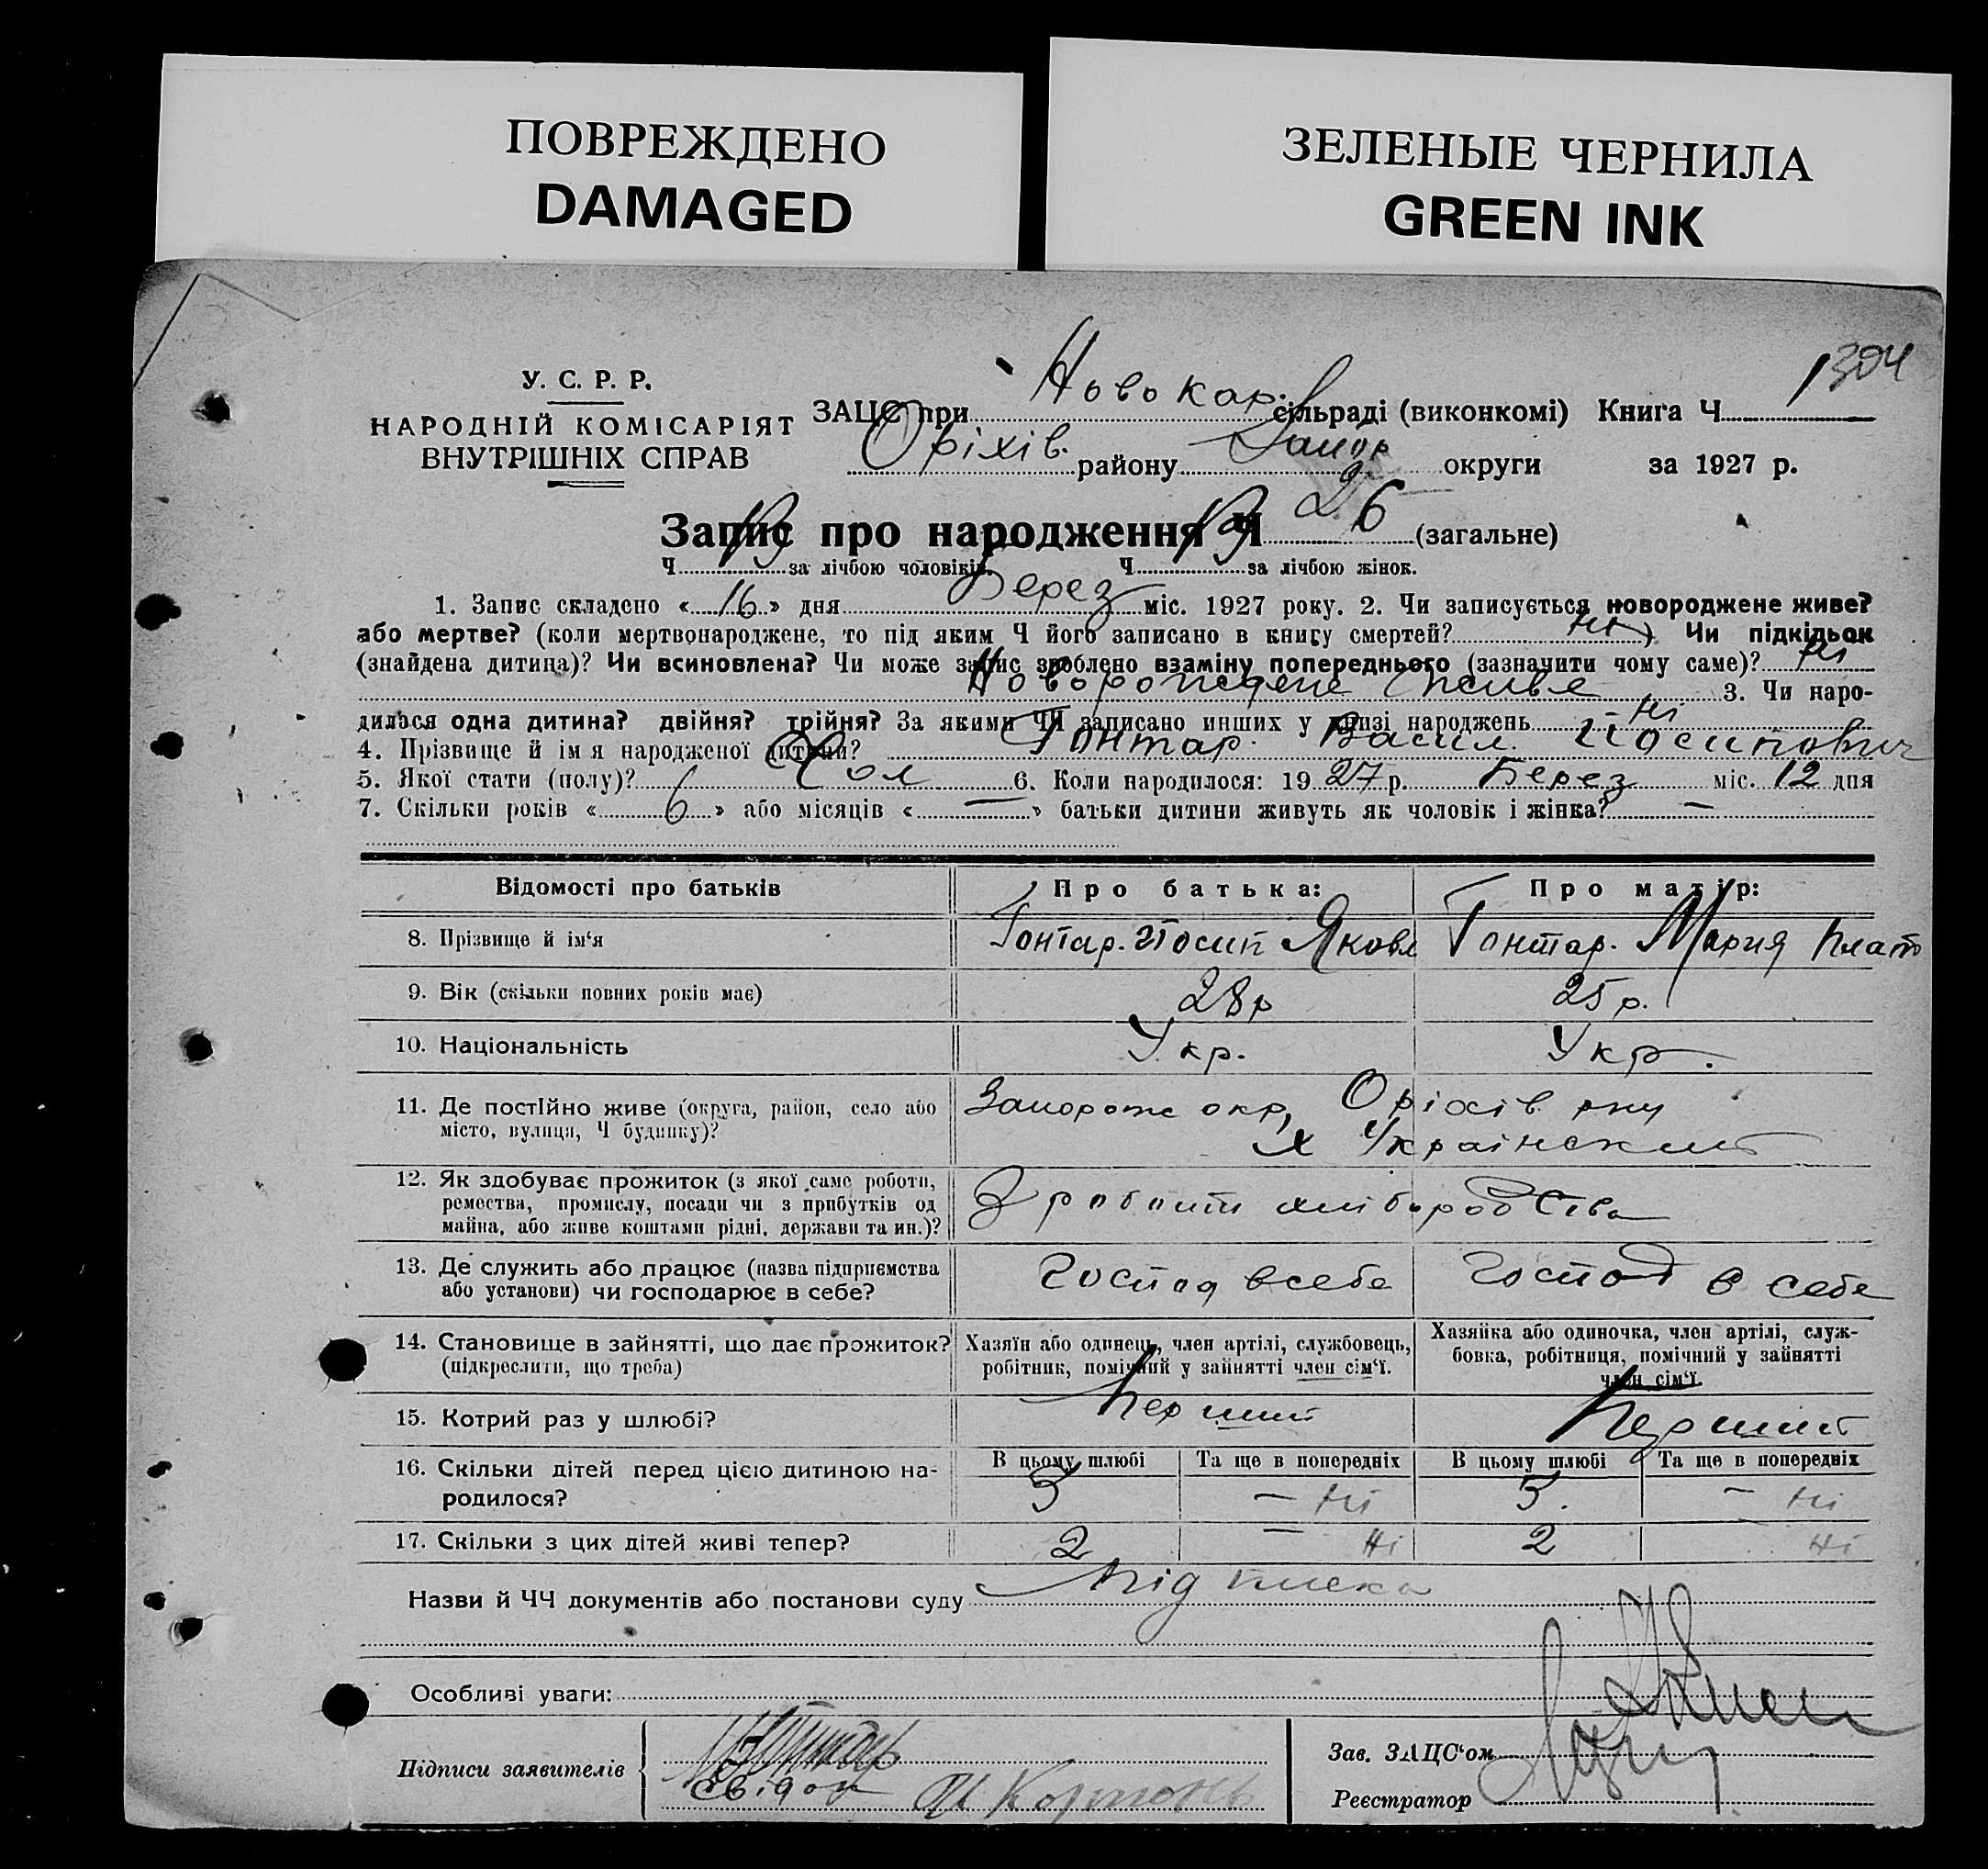 ПОВРЕЖДЕНО
DAMAGED
ЗЕЛЕНЫЕ ЧЕРНИЛА
GREEN INK
1
304
У. С. Р. Р.
НАРОДНІЙ КОМІСАРІЯТ
ВНУТРІШНІХ СПРАВ
ЗАЦС при Новокар. сільраді (виконкомі) Книга Ч.
Оріхів. району Запор округи за 1927 р.
Запис про народження Ч 26 (загальне)
Ч. 13 за лічбою чоловіків. Ч. 13 за лічбою жінок.
1. Запис складено «16» дня Берез міс. 1927 року. 2. Чи записується новороджене живе?
або мертве? (коли мертвонароджене, то під яким Ч його записано в книгу смертей? ні) Чи підкідьок
(знайдена дитина)? Чи всиновлена? Чи може запис зроблено взаміну попереднього (зазначити чому саме)? ні
Новорожедене 3. Чи наро-
дилася одна дитина? двійня? трійня? За якими ЧЧ записано инших у книзі народжень ні
4. Прізвище й ім'я народженої дитини? Гонтар. Васил. Йосипович
5. Якої стати (полу)? Чол 6. Коли народилося: 1927 р. Берез міс. 12 дня
7. Скільки років «6» або місяців «—» батьки дитини живуть як чоловік і жінка? —
Відомості про батьків
Про батька:
Про матір:
8. Прізвище й ім'я
Гонтар. Йосип Яковл
Гонтар. Мария Плато
9. Вік (скільки повних років має)
28р
25р.
10. Національність
Укр.
Укр.
11. Де постІйно живе (округа, район, село або
місто, вулиця, Ч будинку)?
Запорож окр, Оріхів рну
х Українский
12. Як здобуває прожиток (з якої саме роботи,
ремества, промислу, посади чи з прибутків од
майна, або живе коштами рідні, держави та ин.)?
З роботи хліборобства
13. Де служить або працює (назва підприємства
або установи) чи господарює в себе?
Господ в себе
Господ в себе
14. Становище в зайнятті, що дає прожиток?
(підкреслити, що треба)
Хазяїн або одинець, член артілі, службовець,
робітник, помічний у зайнятті член сім'ї.
Хазяйка або одиночка, член артілі, служ-
бовка, робітниця, помічний у зайнятті
член сім'ї.
15. Котрий раз у шлюбі?
Перший
Перший
16. Скільки дітей перед цією дитиною на-
родилося?
В цьому шлюбі
Та ще в попередніх
В цьому шлюбі
Та ще в попередніх
3
— Ні
3.
— Ні
17. Скільки з цих дітей живі тепер?
2
— Ні
2
Ні
Назви й ЧЧ документів або постанови суду Підписка
Особливі уваги:
Підписи заявителів
Гонтар
Свідок
Зав. ЗАЦС'ом
Реєстратор